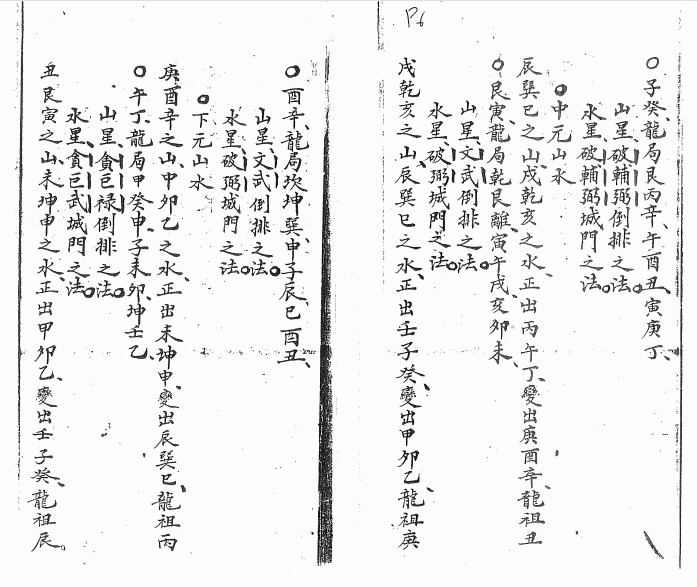 P6
○子癸龍局艮丙辛午酉丑寅庚丁
山星破輔弼倒排之法○
水星破輔弼城門之法○
○中元山水
辰巽巳之山戌乾亥之水正出丙午丁變出庚酉辛龍祖丑
○艮寅龍局乾艮離寅午戌亥卯未
山星文武倒排之法○
水星破弼城門之法○
戌乾亥之山辰巽巳之水正出壬子癸變出甲卯乙龍祖庚
○酉辛龍局坎坤巽申子辰巳酉丑
山星文武倒排之法○
水星破弼城門之法○
○下元山水
庚酉辛之山甲卯乙之水正出未坤申變出辰巽巳龍祖丙
○午丁龍局甲癸申子未卯坤壬乙
山星貪巨祿倒排之法○
水星貪巨武城門之法○
丑艮寅之山未坤申之水正出甲卯乙變出壬子癸龍祖辰。